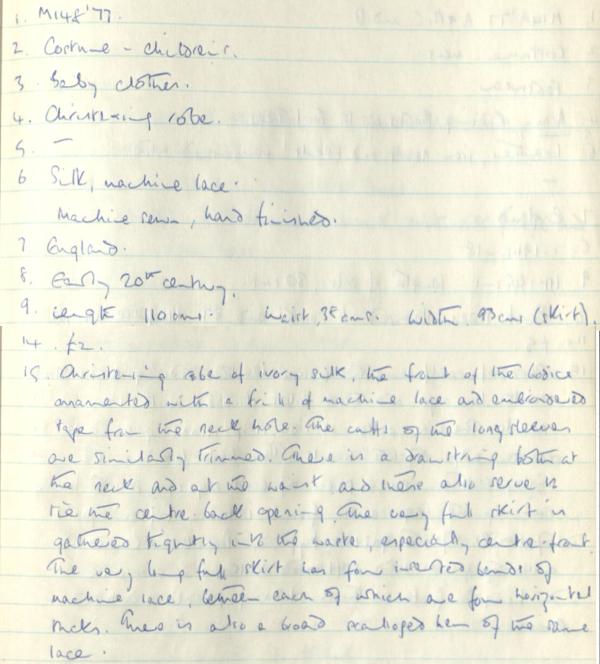 1. M148'77.
2. Costume - children's.
3. Baby clothes.
4. Christening robe.
5. —
6 Silk, machine lace.
Machine sewn, hand finished.
7 England.
8. Early 20th century.
9. Length 110cms. Waist, 38cms. Width 93cms (skirt).
14. £2.
15. Christening robe of ivory silk, the front of the bodice
ornamented with a frill of machine lace and embroidered
tape from the neck hole. The cuffs of the long sleeves
are similarly trimmed. There is a drawstring both at
the neck and at the waist and these also serve to
tie the centre-back opening. The very full skirt is
gathered tightly into the waste, especially centre-front.
The very long full skirt has four inserted bands of
machine lace, between each of which are four horizontal
tucks. There is also a broad scalloped hem of the same
lace.